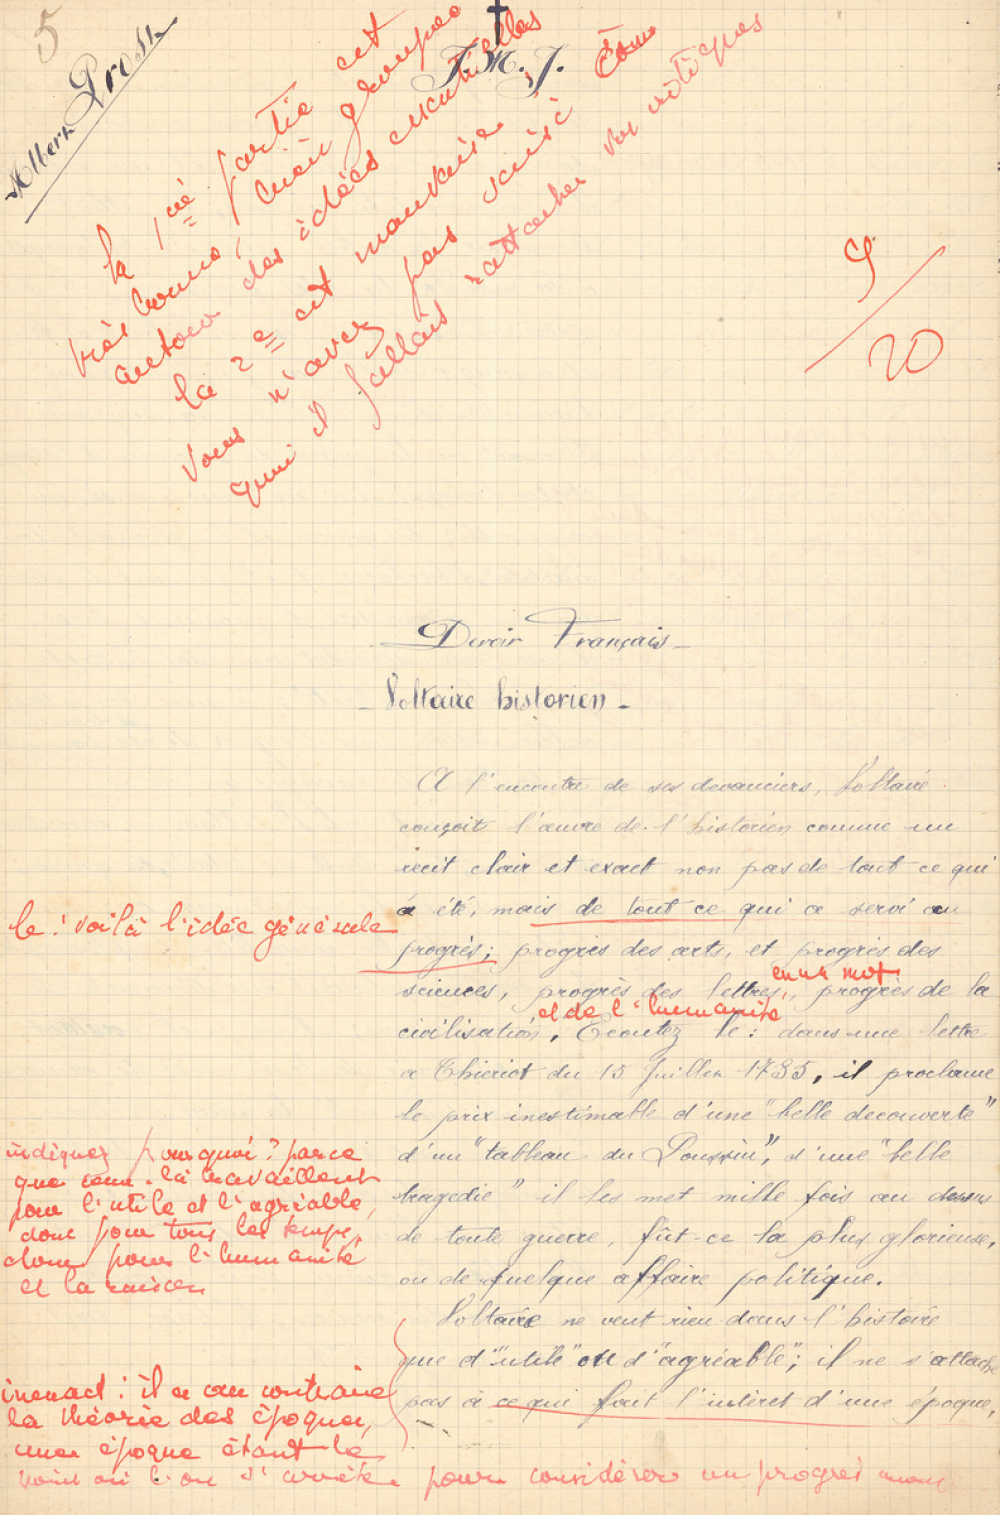 5
Prost
J. M. J.
la 1re partie est
très bonne, bien groupée
autour des idées essentielles
la 2e est mauvaise,
vous n'avez pas saisi à
quoi il fallait rattacher vos critiques
9/20
Devoir Français
Voltaire historien
A l'encontre de ses devanciers, Voltaire
conçoit l'œuvre de l'historien comme un
récit clair et exact non pas de tout ce qui
a été, mais de tout ce qui a servi au
le : voilà l'idée générale
progrès; progrès des arts, et progrès des
en un mot
sciences, progrès des lettres, progrès de la
et de l'humanité
civilisation, Ecoutez le : dans une lettre
a Thieriot du 15 Juillet 1735, il proclame
le prix inestimable d'une "belle decouverte"
d'un "tableau du Poussin", d'une "belle
tragedie" il les met mille fois au dessus
de toute guerre, fût-ce la plus glorieuse,
ou de quelque affaire politique.
indiquez pourquoi? parce
que ceux-là travaillent
pour l'utile et l'agréable,
donc pour tous les temps,
donc pour l'humanité
et la raison
Voltaire ne veut rien dans l'histoire
que d'"utile" ou d'"agréable"; il ne s'attache
pas à ce qui fait l'intéret d'une époque,
inexact : il a au contraire
la théorie des époques,
une époque étant le
point où l'on s'arrête pour considérer un progrès